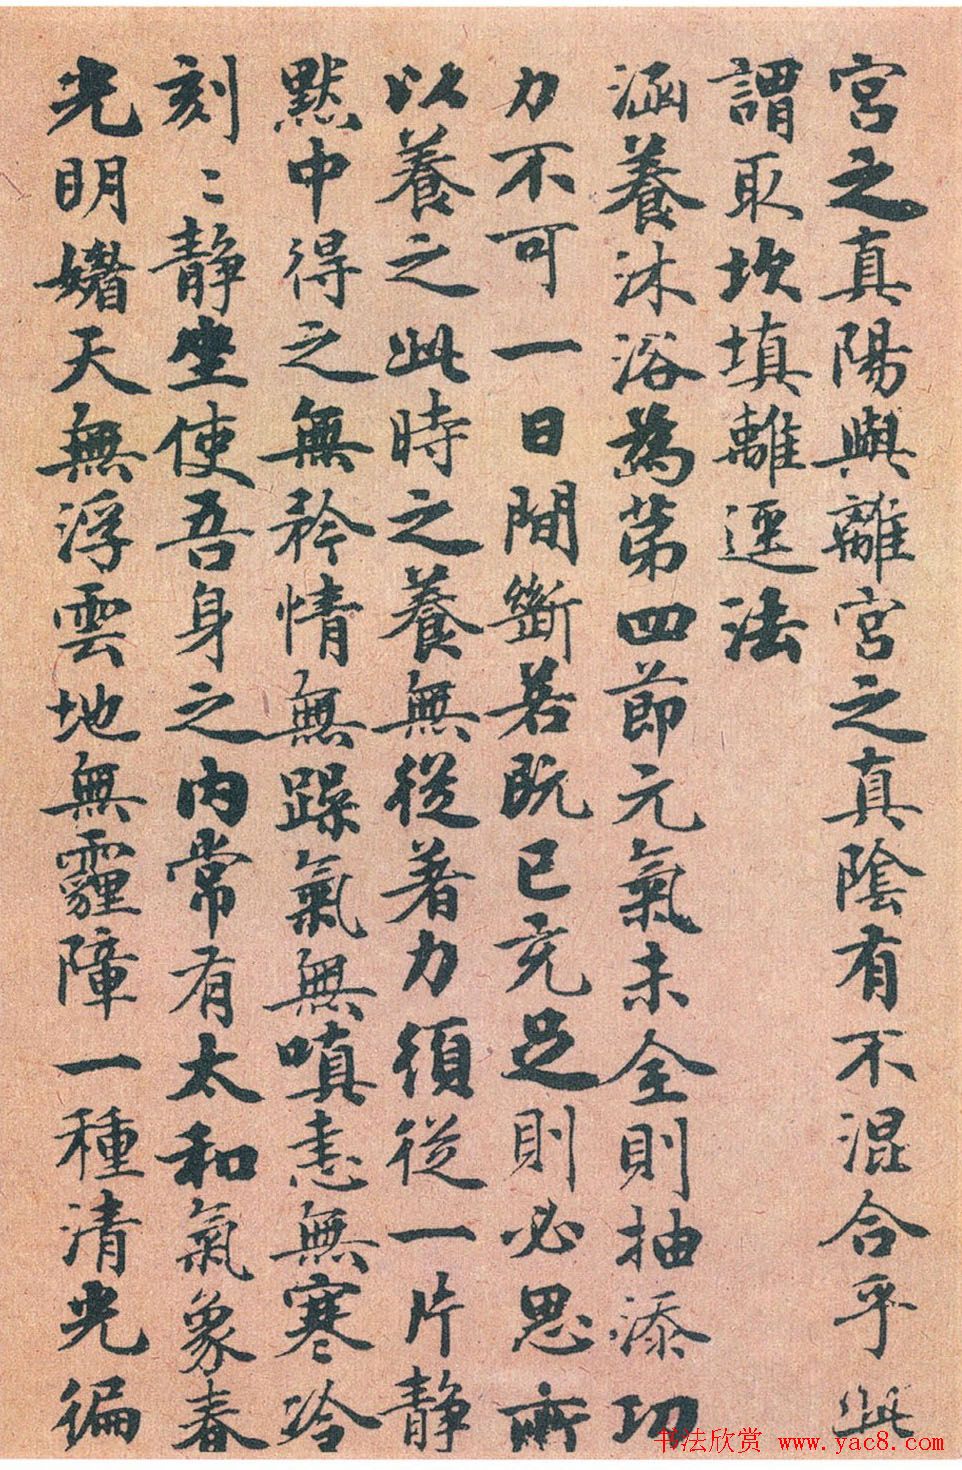 宮之真陽與離宮之真陰有不混合乎此
謂取坎填離逕法
涵養沐浴為第四節元氣未全則抽添功
力不可一日間斷若既已充足則必思所
以養之此時之養無從著力須從一片靜
默中得之無矜情無躁氣無嗔恚無寒冷
刻〻靜坐使吾身之內常有太和氣象春
光明媚天無浮雲地無霾障一種清光徧
书法欣赏 www.yac8.com